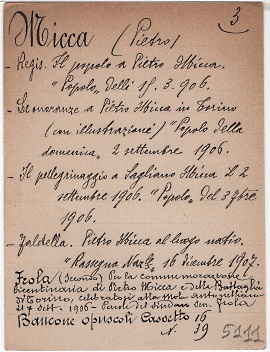 3
Micca (Pietro)
- Regis. Il popolo a Pietro Micca.
"Popolo, delli 15. 3. 906.
- Le onoranze a Pietro Micca in Torino
(con illustrazione) "Popolo della
domenica" 2 settembre 1906.
- Il pellegrinaggio a Sagliano Micca il 2
settembre 1906. "Popolo" del 3 7bre
1906.
- Faldella. Pietro Micca al luogo natio.
"Rassegna Naz.le" 16 dicembre 1907.
Frola (Secondo) Per la commemorazione
bicentenaria di Pietro Micca e della Battaglia
di Torino, celebratasi alla mole antonelliana
il 7 sett. 1906 - Parole del Sindaco Sen. Frola
Bancone opuscoli Cassetto 16
N. 39
5211